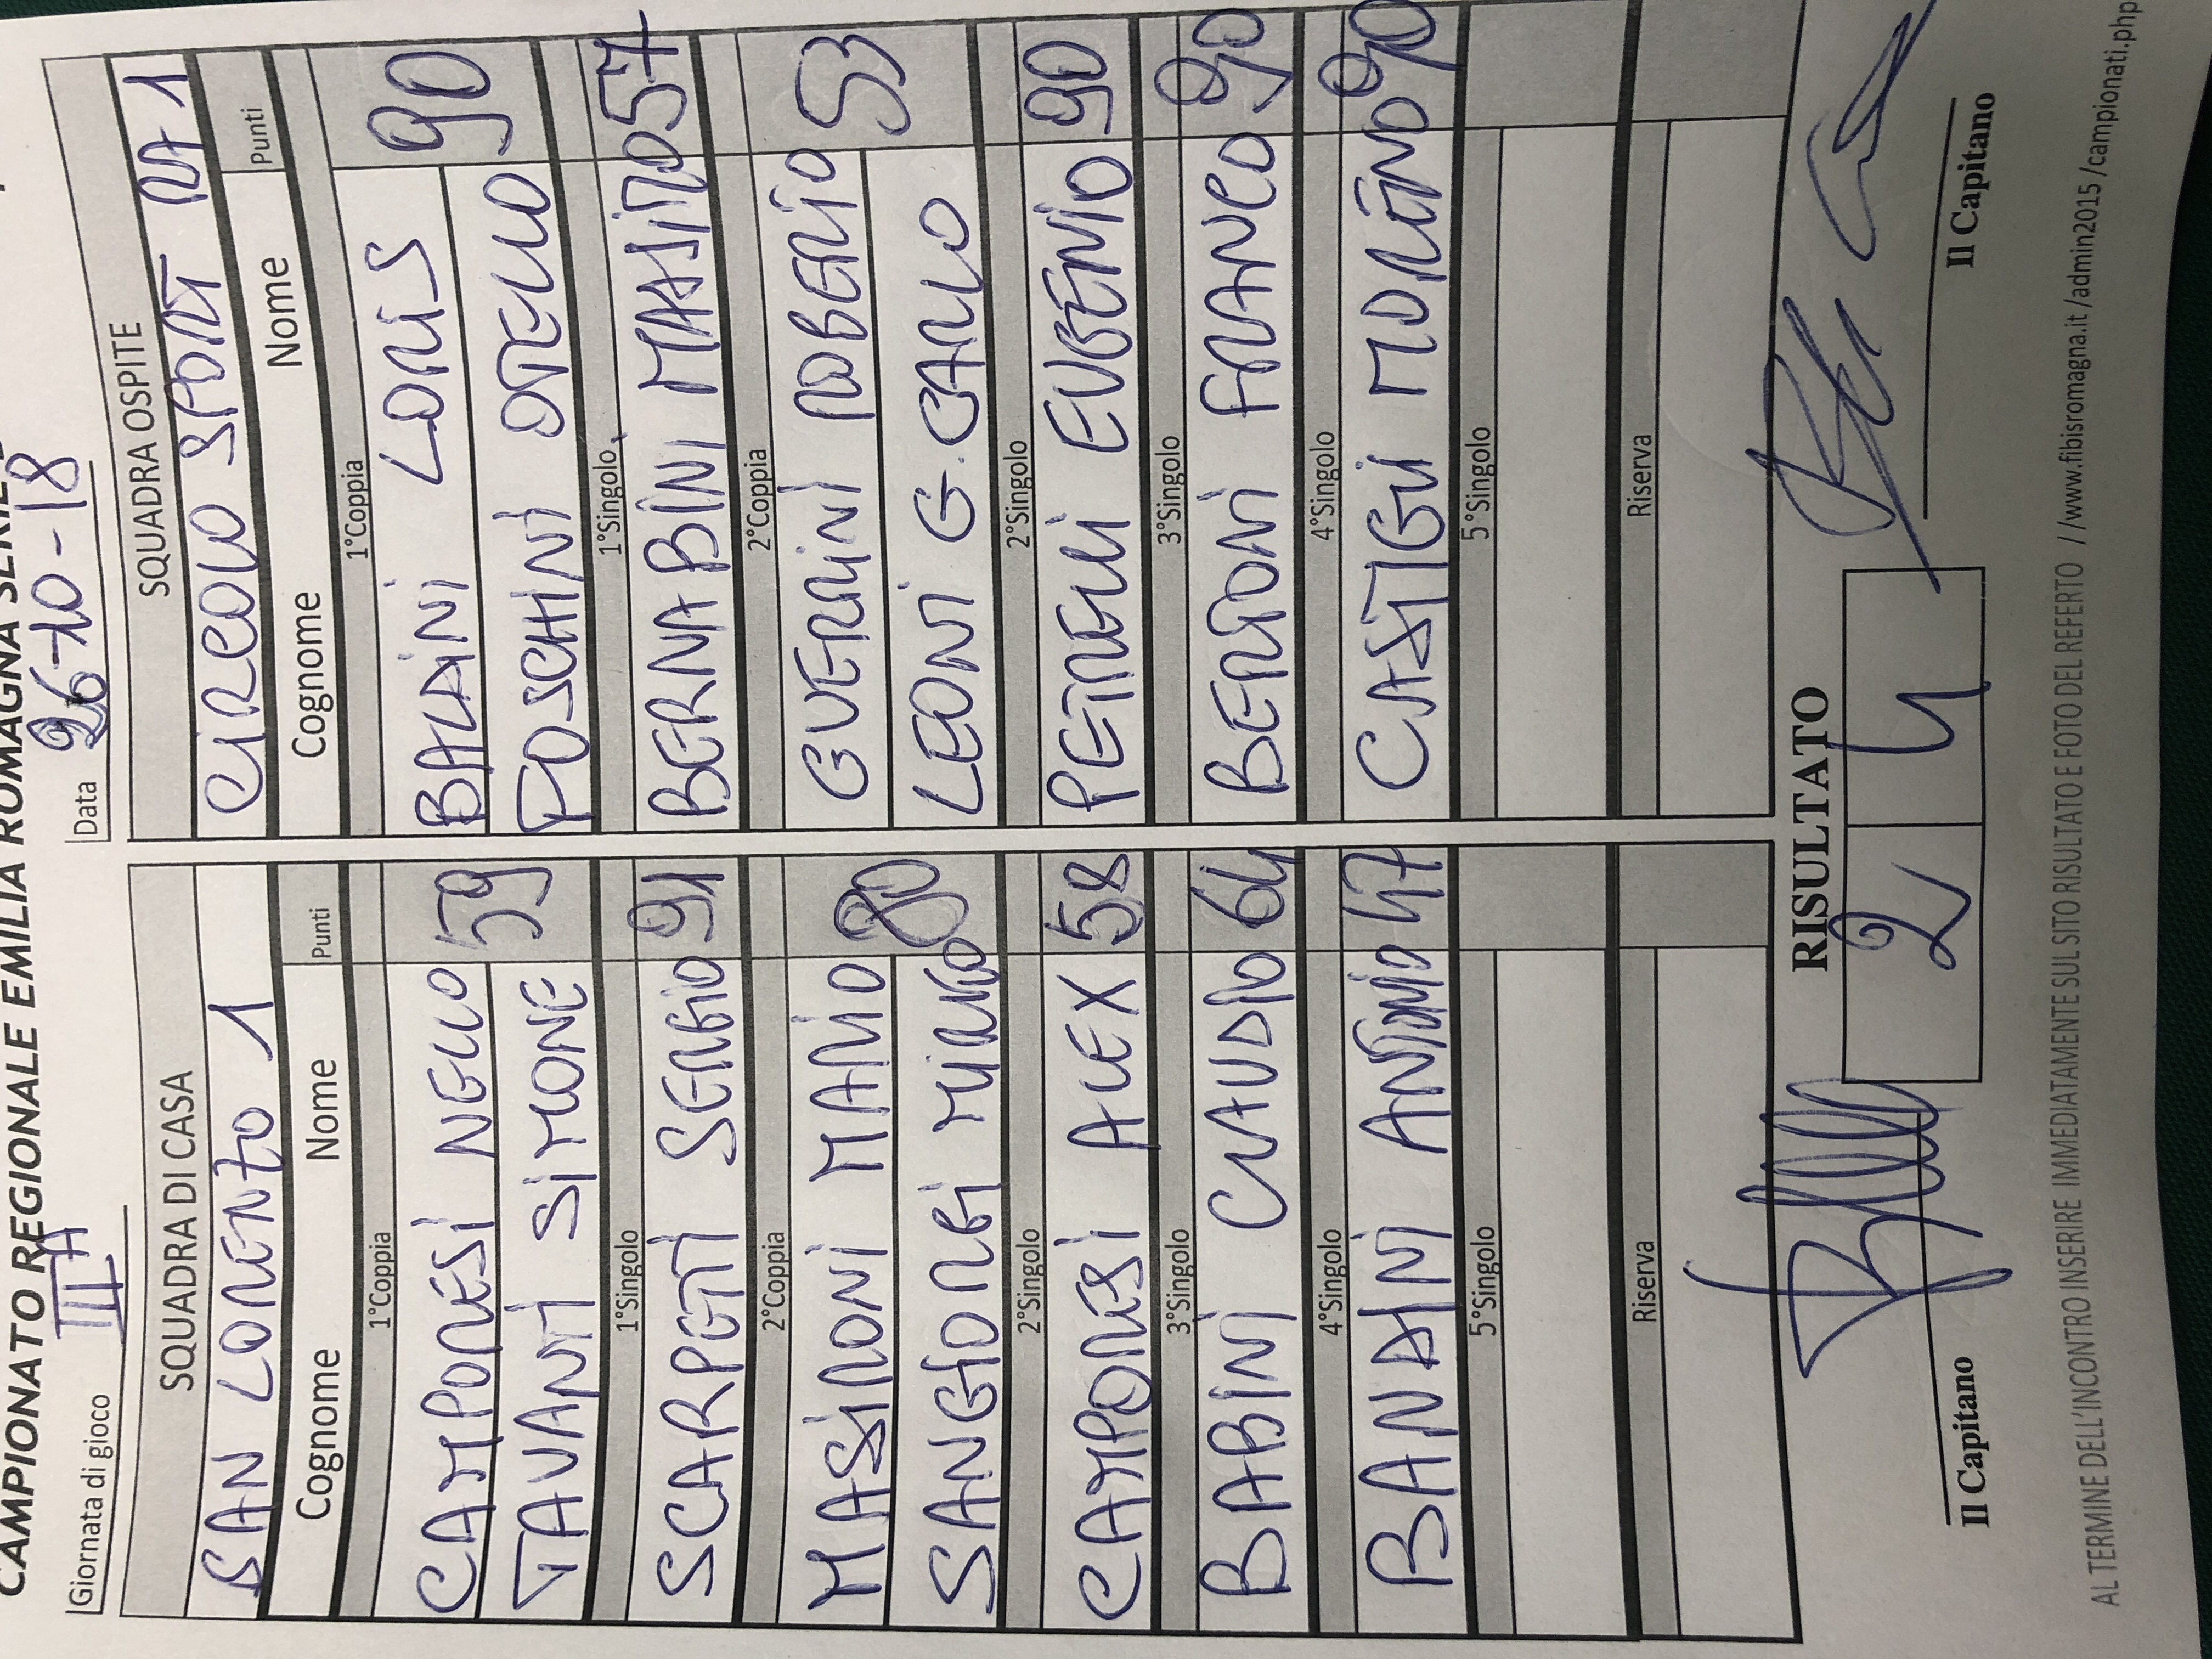 CAMPIONATO REGIONALE EMILIA ROMAGNA
Giornata di gioco III A
Data 26-10-18
SQUADRA DI CASA
SAN LORENZO 1
Cognome Nome Punti
1°Coppia
CAMPORESI NELLO 59
TAVANTI SIMONE
1°Singolo
SCARPETTI SERGIO 91
2°Coppia
MASSIRONI MARIO 80
SANGIORGI MIRKO
2°Singolo
CAMPORESI ALEX 58
3°Singolo
BABINI CLAUDIO 64
4°Singolo
BANDINI ANTONIO 47
5°Singolo
Riserva
SQUADRA OSPITE
CIRCOLO SPORT RA 1
Cognome Nome Punti
1°Coppia
BALLINI LORIS 90
FOSCHINI OTELLO
1°Singolo
BERNABINI MASSIMO 57
2°Coppia
GUERRINI ROBERTO 53
LEONI G. CARLO
2°Singolo
PETRELLI EUGENIO 90
3°Singolo
BERTONI FRANCO 90
4°Singolo
CASTIGLI MORENO 90
5°Singolo
Riserva
RISULTATO
2 4
Il Capitano
Il Capitano
AL TERMINE DELL'INCONTRO INSERIRE IMMEDIATAMENTE SUL SITO RISULTATO E FOTO DEL REFERTO //www.fibisromagna.it/admin2015/campionati.php